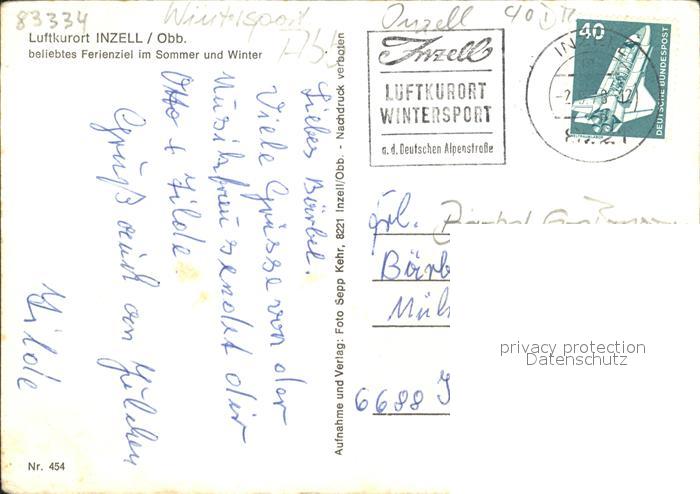 83334 Wintersport Inzell
Luftkurort INZELL / Obb.
beliebtes Ferienziel im Sommer und Winter
Liebes Bärbel.
Viele Grüsse von der
sendet dir
Otto + Hilde.
Gruß auch an
Hilde
Nr. 454
Aufnahme und Verlag: Foto Sepp Kehr, 8221 Inzell/Obb. - Nachdruck verboten
Inzell
LUFTKURORT
WINTERSPORT
a.d. Deutschen Alpenstraße
40
DEUTSCHE BUNDESPOST
Frl.
Bärb
Müh
6688 I
privacy protection
Datenschutz